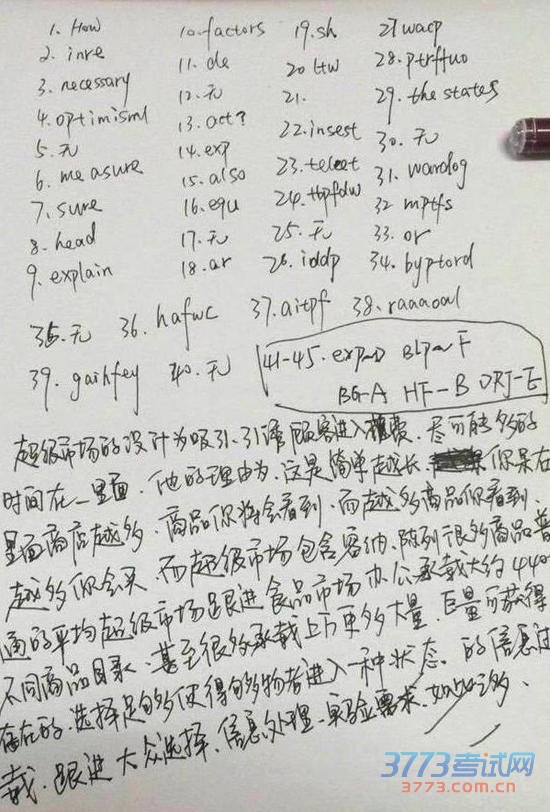 1. How 10. factors 19. sh 27 wacp
2. inre 11. de 20 ttw 28. ptrffuo
3. necessary 12. 无 21. 29. the states
4. optimisml 13. act? 22. insest 30. 无
5. 无 14. exp 23. teleet 31. wardog
6. measure 15. also 24. tbpfdw 32 mptfs
7. sure 16. equ 25. 无 33. or
8. head 17. 无 26. iddp 34. byptord
9. explain 18. ar
35. 无 36. hafwc 37. aitpf 38. raaaoal
39. gaihfey 40. 无 41-45. exp-D BLP-F
BG-A HF-B DRJ-E
超级市场的设计为吸引、引诱顾客进入 尽可能多的
时间在一里面. 他的理由为.这是简单越长 你呆在
里面商店越多. 商品你将会看到.而越多商品你看到.
越多你会买.而超级市场包含容纳.陈列很多商品普
通的平均超级市场跟进食品市场办公承载大约440
不同商品目录.甚至很多承载上万更多大量.巨量可获得
存在的.选择足够多使得购物者进入一种状态.的信息过
载.跟进大众选择.信息处理.实验需求.如此之多.
3773考试网
www.3773.com.cn